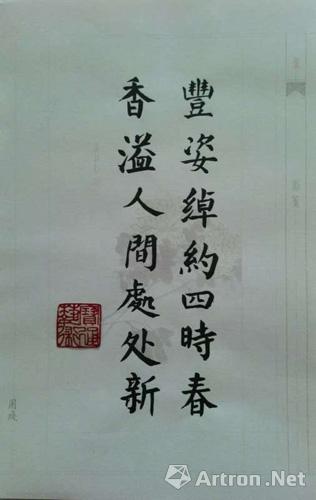 豐姿綽約四時春
香溢人間處处新
Artron.Net